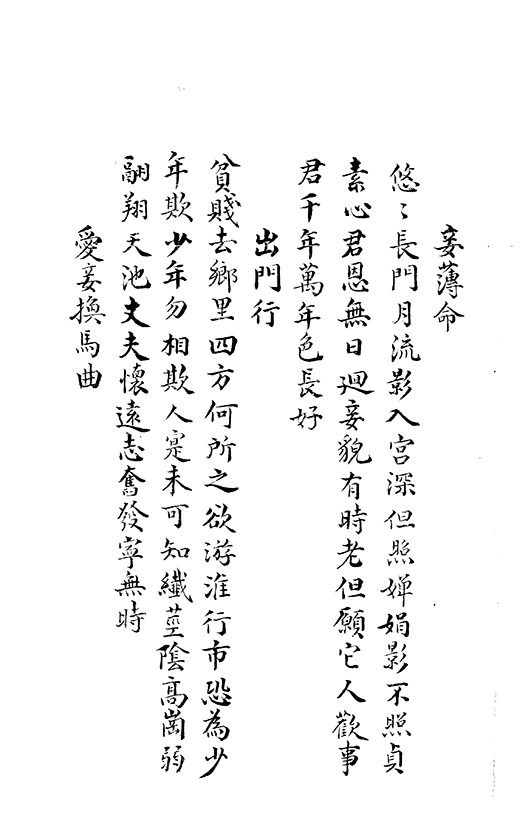 妾薄命
悠〻長門月流影入宫深但照嬋娟影不照貞
素心君恩無日廻妾貌有時老但願它人歡事
君千年萬年色長好
出門行
貧賤去鄉里四方何所之欲游淮行市恐為少
年欺少年勿相欺人寔未可知纖莖陰高崗弱
翮翔天池丈夫懷遠志奮發寧無時
愛妾換馬曲